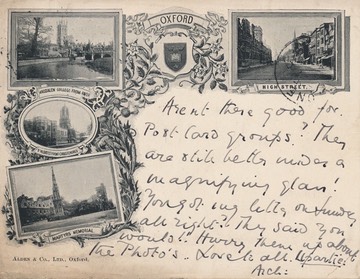 OXFORD
MAGDALEN COLLEGE FROM RIVER
HIGH STREET.
Arent these good for
Post card groups? They
are still better under a
magnifying glass!
You got my letter on Sunday
all right? They said you
would! Hurry them up about
the Photo's. Love to all
MARTYRS MEMORIAL
ALDEN & CO., LTD., Oxford.